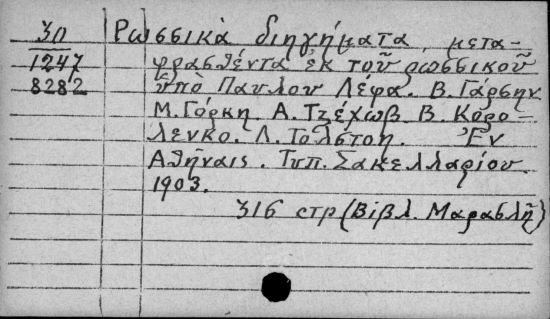 30 Ρωσσικὰ διηγήματα, μετα-
1247 φρασθέντα ἐκ τοῦ ρωσσικοῦ
8282 ὑπὸ Παυλου Λέφα. Β. Γάρσην
Μ. Γόρκη. Α. Τζέχωβ. Β. Κορο-
λενκο. Λ. Τολστόη. Ἐν
Ἀθήναις. Τυπ. Σακελλαρίου.
1903.
316 стр (Βίβλ. Μαρασλῆ)